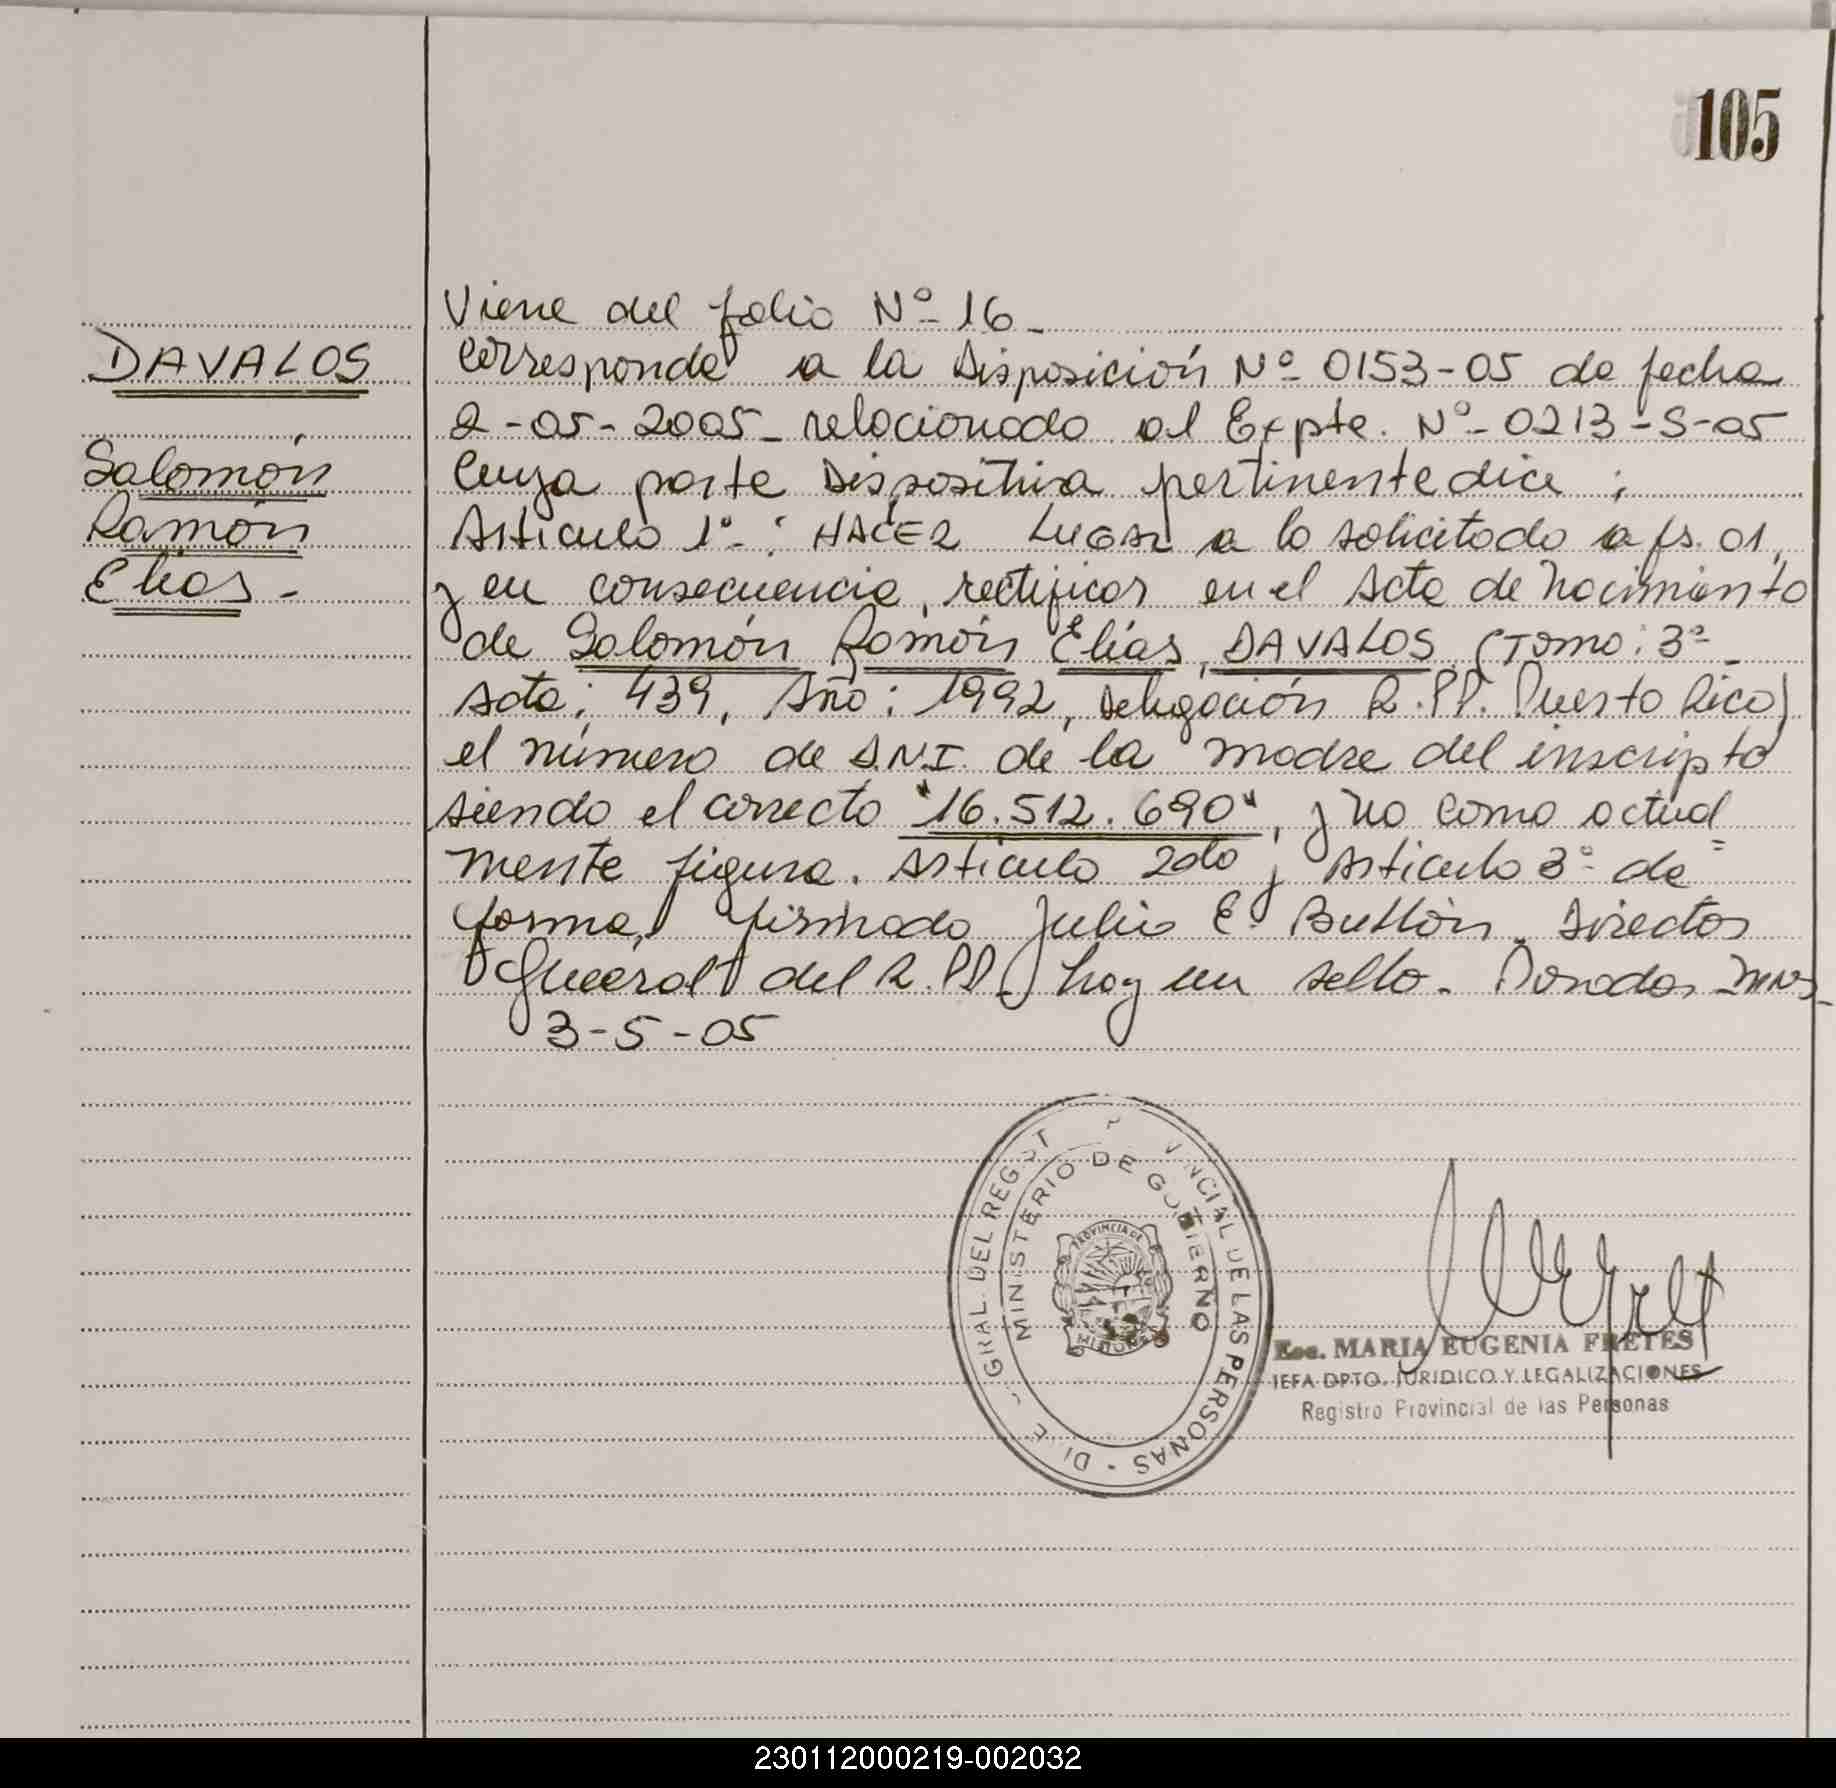 105
DAVALOS
Salomón
Ramón
Elías -
Viene del folio Nº 16 -
Corresponde a la Disposición Nº 0153-05 de fecha
2-05-2005 - relacionado al Expte. Nº 0213-S-05
Cuya parte Dispositiva pertinente dice :
Articulo 1º : HACER LUGAR a lo solicitado a fs. 01,
y en consecuencia, rectificar en el Acta de Nacimiento
de Salomón Ramón Elías, DAVALOS (Tomo: 3º -
Acta: 439, Año: 1992, Delegación R.PP. Puerto Rico)
el número de D.N.I. de la madre del inscripto
siendo el correcto "16.512.690", y no como actual=
mente figura. Articulo 2do y Articulo 3º de
forma, firmado Julio E. Buttón. Director
General del R.PP. hay un sello. Posadas Mns -
3-5-05
GRAL. DEL REGIST VINCIAL DE LAS PERSONAS
MINISTERIO DE GOBIERNO
PROVINCIA DE
MISIONES
Esc. MARIA EUGENIA FRETES
JEFA DPTO. JURIDICO Y LEGALIZACIONES
Registro Provincial de las Personas
230112000219-002032